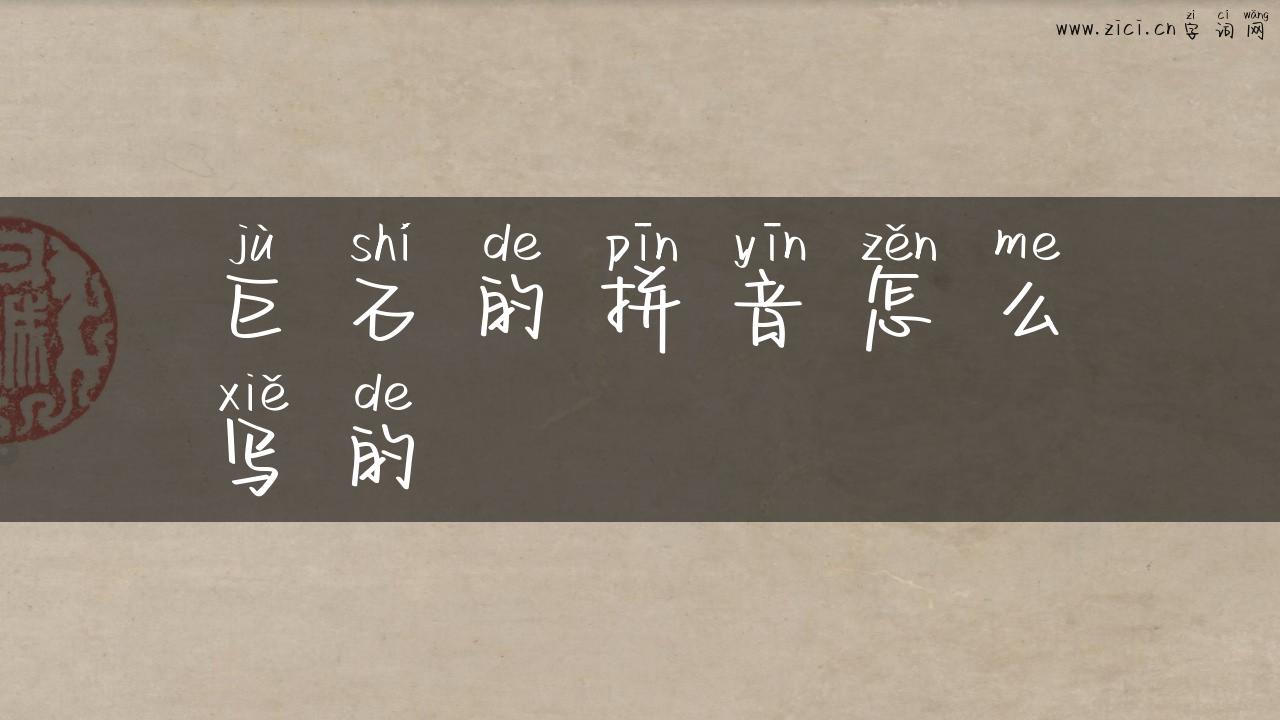 zì cí wǎng
www.zici.cn 字词网
jù shí de pīn yīn zěn me
巨石的拼音怎么
xiě de
写的